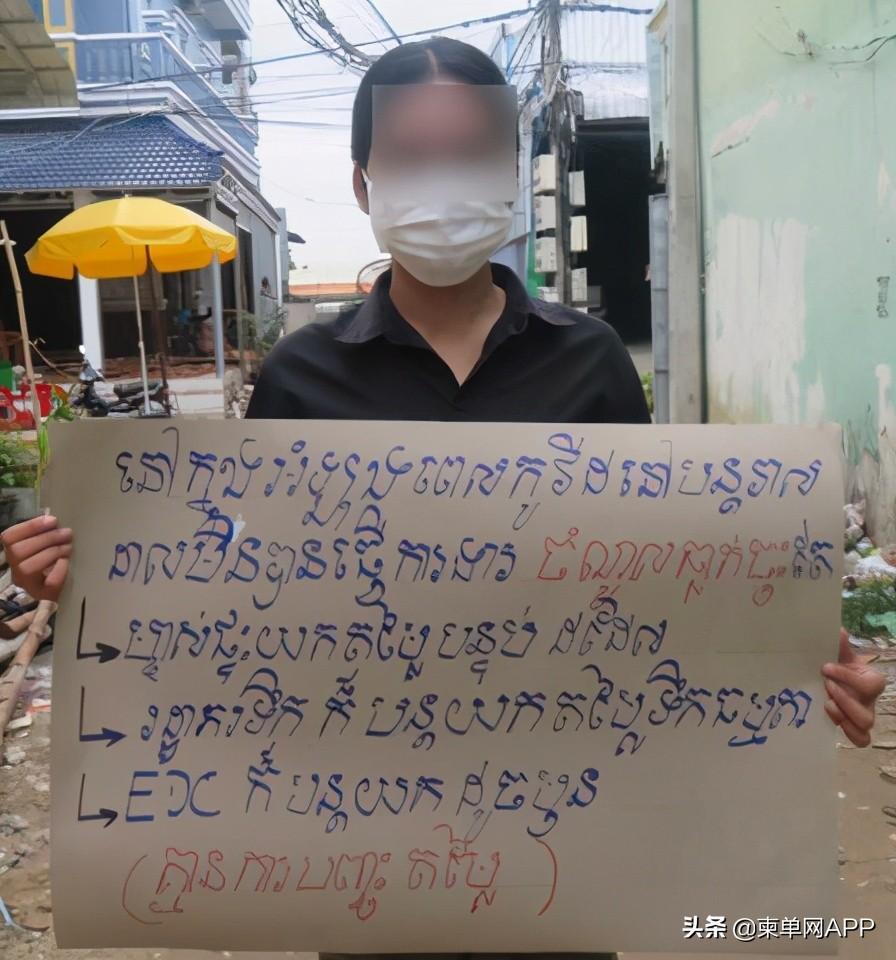 នៅក្នុងអំឡុងពេលកូវីដនៅបន្តរាល
ដាលមិនបានធ្វើការងារ ចំណូលធ្លាក់ចុះតែ
ម្ចាស់ផ្ទះយកតម្លៃបន្ទប់ ដដែល
រដ្ឋាករទឹក ក៏ បន្តយកតម្លៃទឹកធម្មតា
EDC ក៏ បន្តយក ដូចមុន
(គ្មានការបញ្ចុះ តម្លៃ)
头条 @柬单网APP